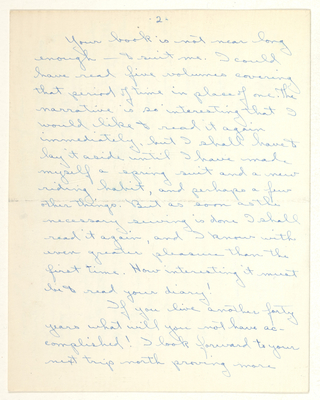 -2-
Your book is not near long
enough — to suit me. I could
have read five volumes covering
that period of time in place of one. The
narrative is so interesting that I
would like to read it again
immediately, but I shall have to
lay it aside until I have made
myself a spring suit and a new
riding habit, and perhaps a few
other things. But as soon as the
necessary sewing is done I shall
read it again, and I know with
even greater pleasure than the
first time. How interesting it must
be to read your diary!
If you live another forty
years what will you not have ac-
complished! I look forward to your
next trip north proving more